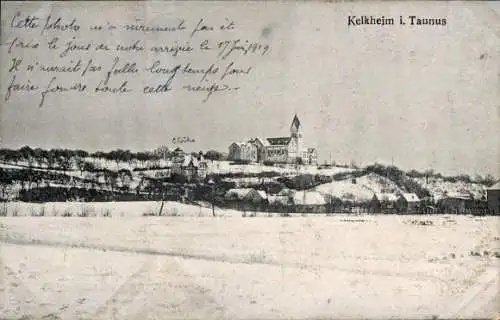 Kelkheim i. Taunus
Cette photo n'a sûrement pas été
prise le jour de notre arrivée le 17 Juin 1919
Il n'aurait pas fallu longtemps pour
faire fondre toute cette neige.